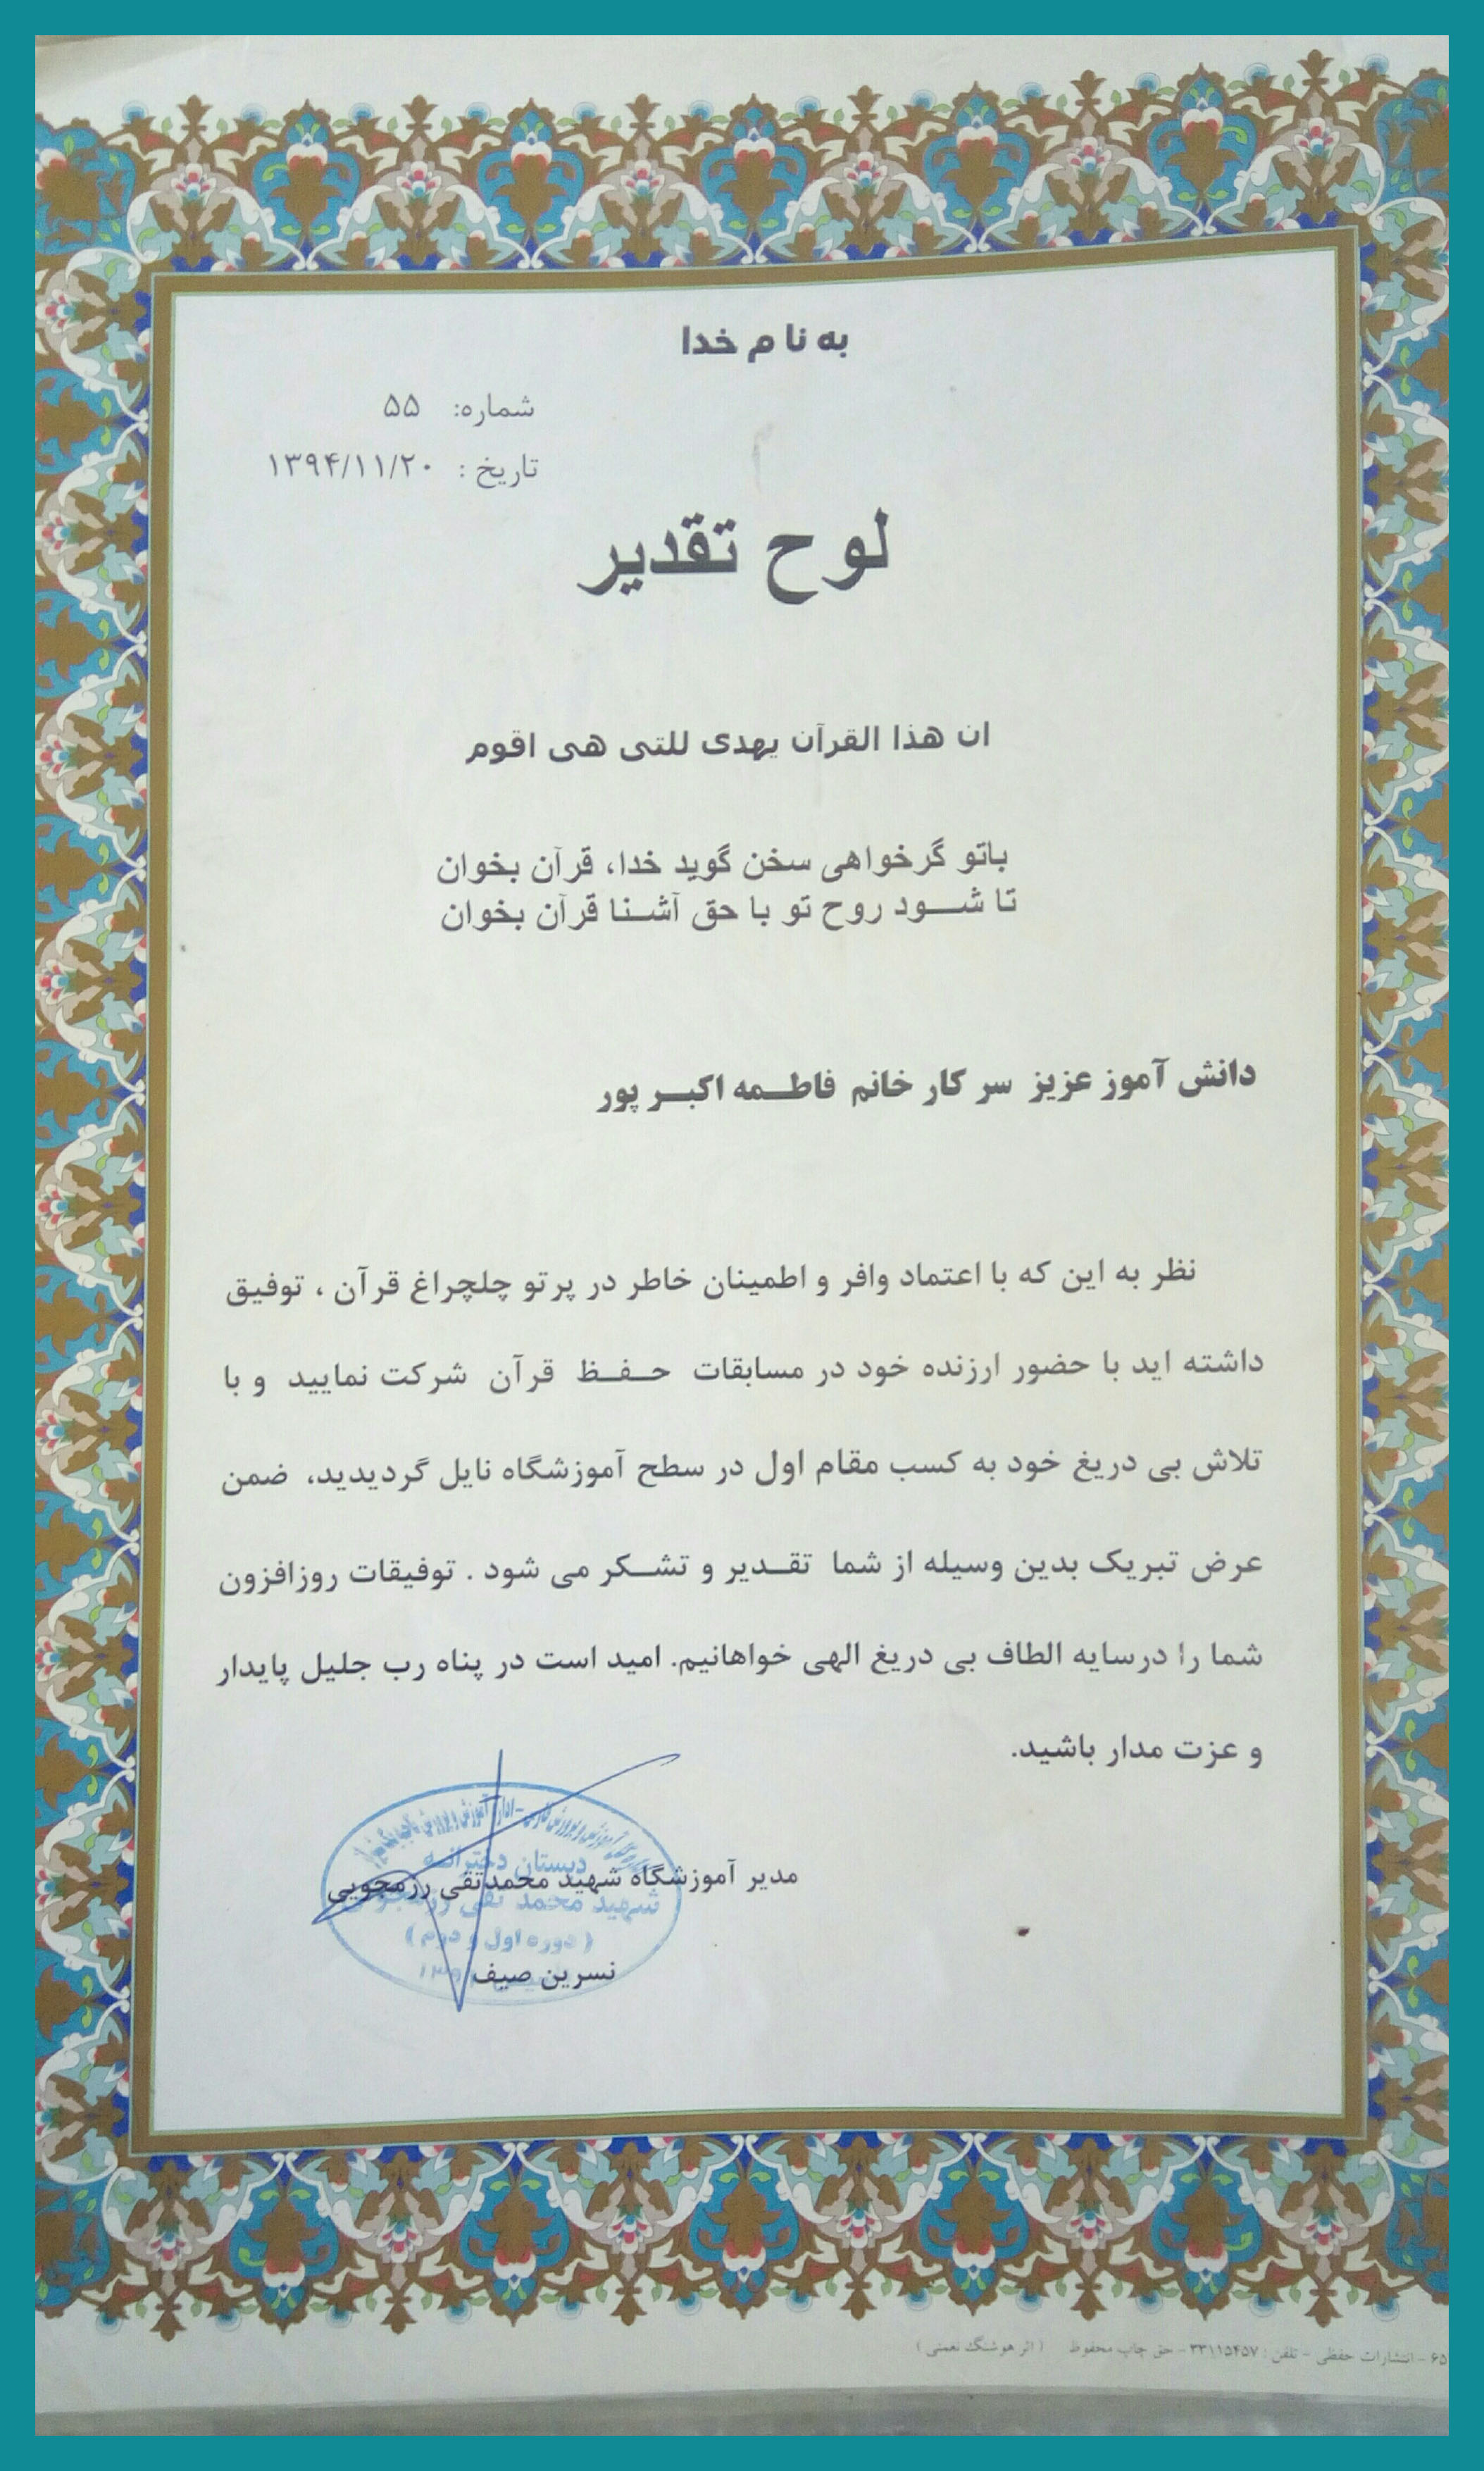 به نام خدا
شماره: ۵۵
تاریخ : ۱۳۹۴/۱۱/۲۰
لوح تقدیر
ان هذا القرآن یهدی للتی هی اقوم
باتو گرخواهی سخن گوید خدا، قرآن بخوان
تا شـــود روح تو با حق آشـنا قرآن بخوان
دانش آموز عزیز سر کار خانم فاطـمه اکبـر پور
نظر به این که با اعتماد وافر و اطمینان خاطر در پرتو چلچراغ قرآن ، توفیق
داشته اید با حضور ارزنده خود در مسابقات حـفـظ قرآن شرکت نمایید و با
تلاش بی دریغ خود به کسب مقام اول در سطح آموزشگاه نایل گردیدید، ضمن
عرض تبریک بدین وسیله از شما تقـدیر و تشـکر می شود . توفیقات روزافزون
شما را درسایه الطاف بی دریغ الهی خواهانیم. امید است در پناه رب جلیل پایدار
و عزت مدار باشید.
دبستان دخترانـه
مدیر آموزشگاه شهید محمدتقی رزمجویی
شهید محمد تقی
( دوره اول و دوم )
نسرین صیف
۶۵ - انتشارات حفظی - تلفن : ۳۳۱۱۵۴۵۷ - حق چاپ محفوظ ( اثر هوشنگ نعمتی )